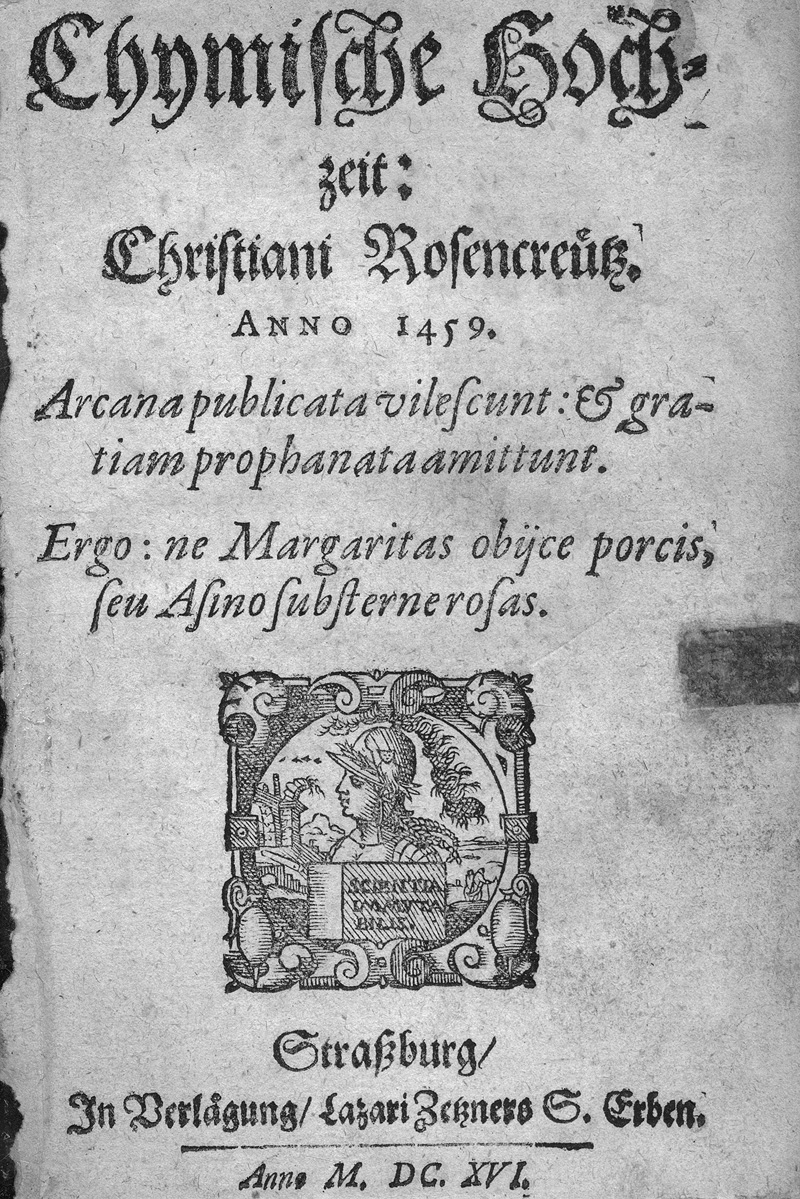 Chymiſche Hoch-
zeit:
Chriſtiani Roſencreütz.
ANNO 1459.
Arcana publicata vileſcunt: & gra-
tiam prophanata amittunt.
Ergo: ne Margaritas obijce porcis,
ſeu Aſino ſubſterne roſas.
SCIENTIA
IMMVTA
BILIS.
Straßburg/
In Verlägung/ Lazari Zetzners S. Erben.
Anno M. DC. XVI.